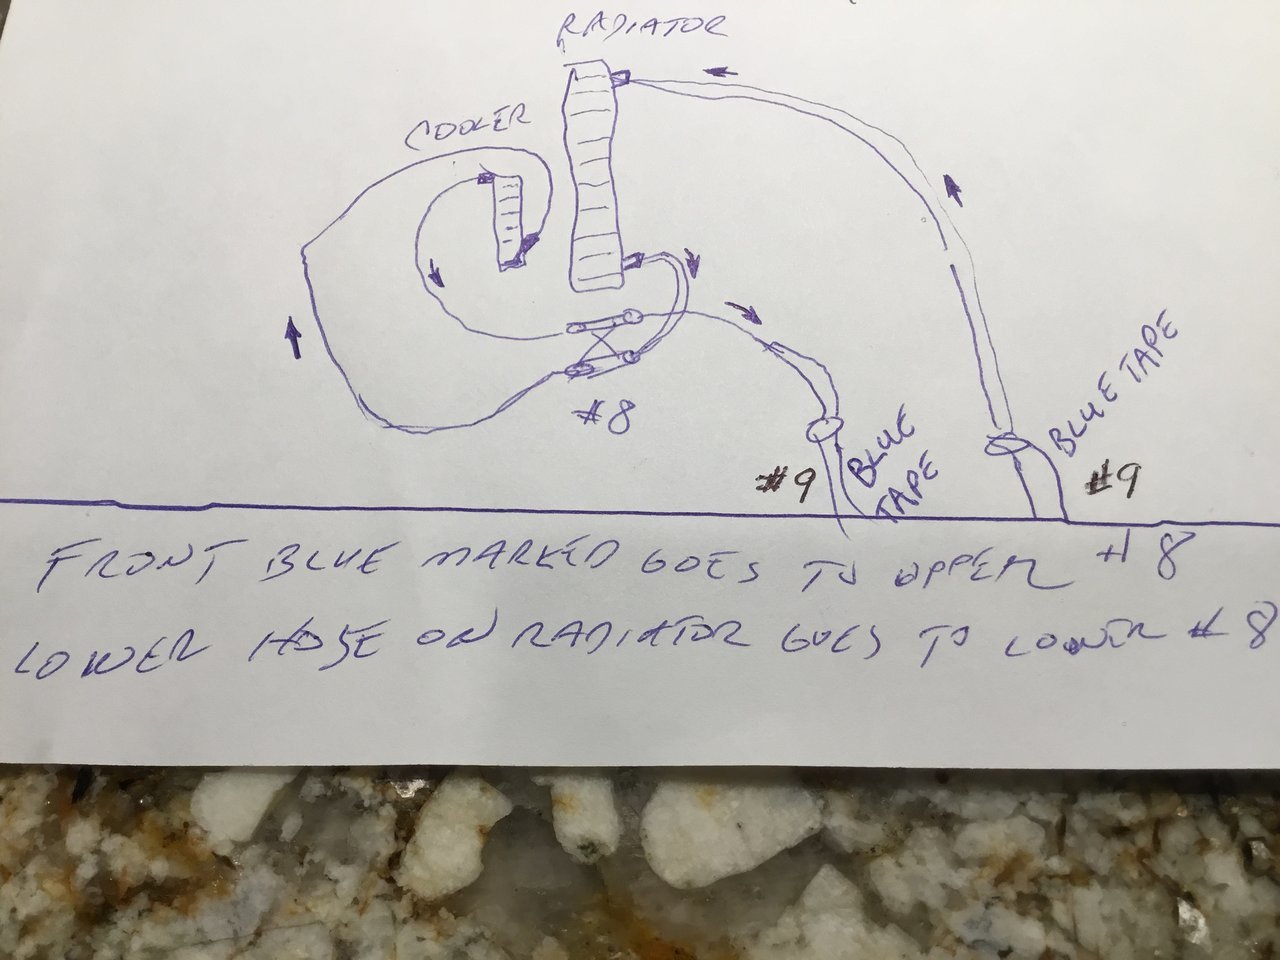 RADIATOR
COOLER
#8
#9
BLUE
TAPE
BLUE TAPE
#9
FRONT BLUE MARKED GOES TO UPPER #8
LOWER HOSE ON RADIATOR GOES TO LOWER #8